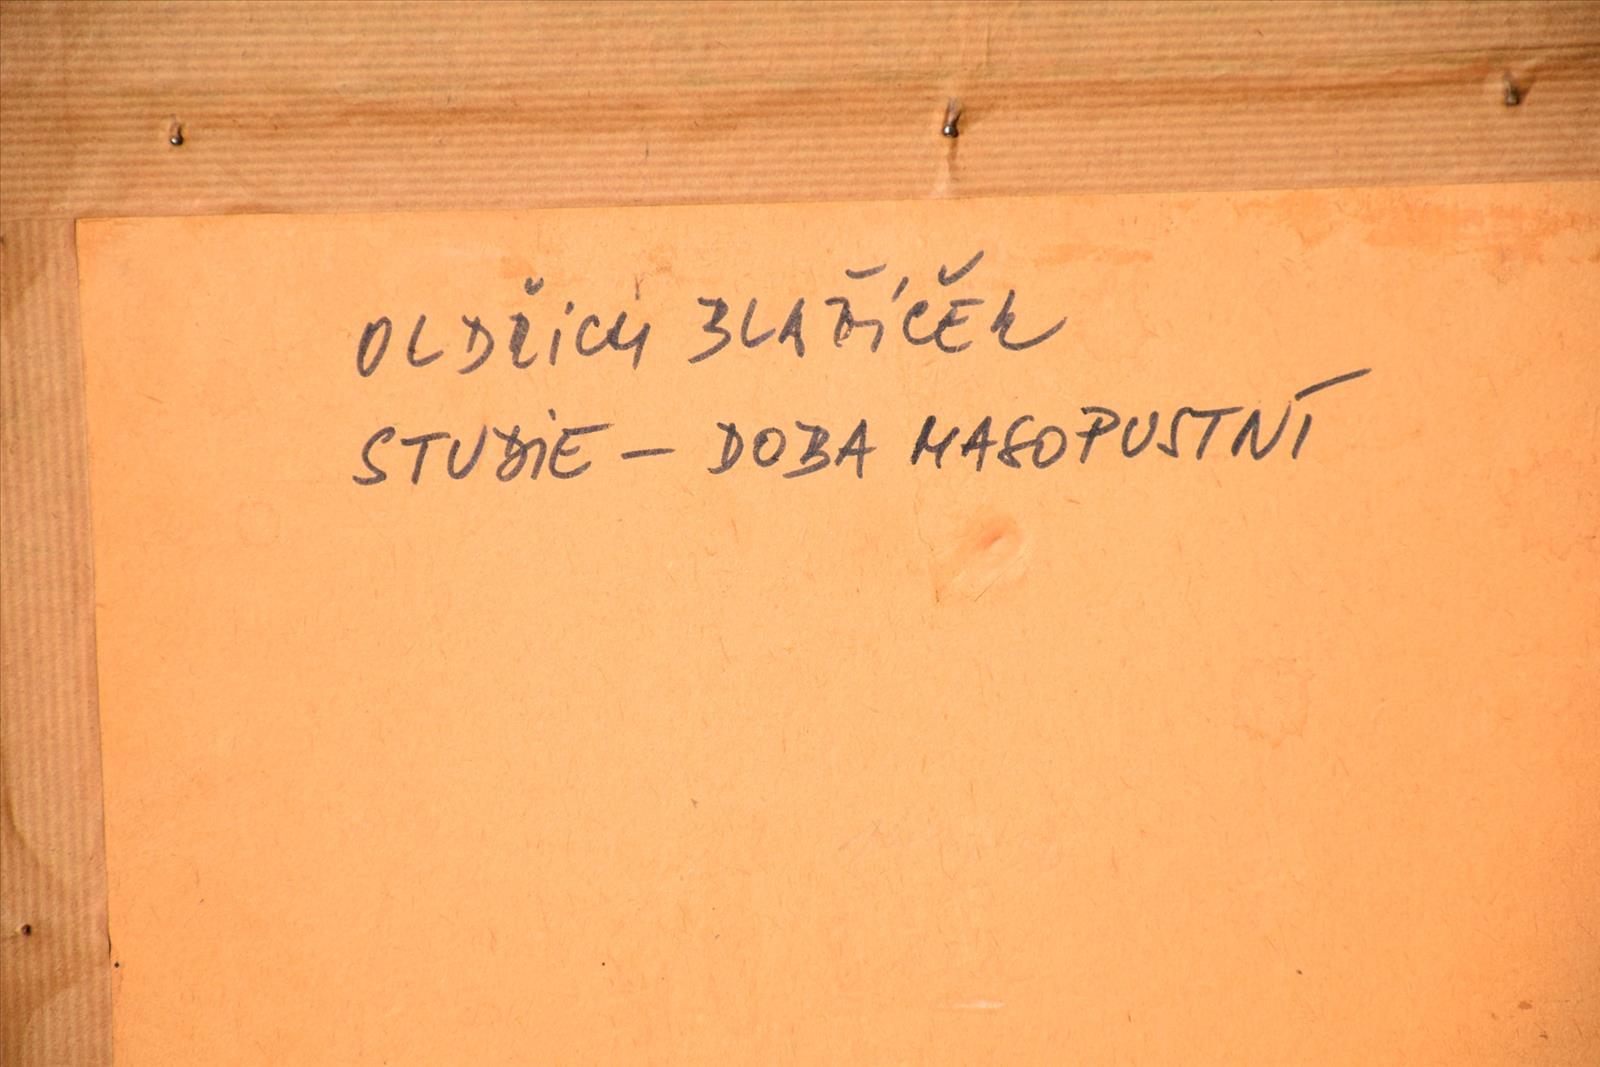 OLDŘiCH BLAŽÍČEK
STUDiE - DOBA MASOPUSTNÍ